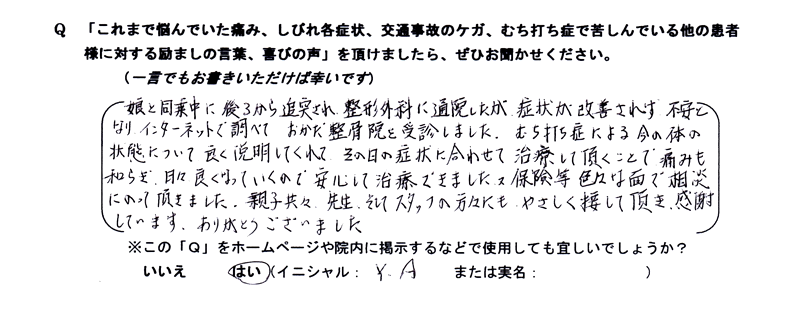 Q 「これまで悩んでいた痛み、しびれ各症状、交通事故のケガ、むち打ち症で苦しんでいる他の患者
様に対する励ましの言葉、喜びの声」を頂けましたら、ぜひお聞かせください。
（一言でもお書きいただけば幸いです）
娘と同乗中に後ろから追突され、整形外科に通院したが、症状が改善されず、不安と
なりインターネットで調べて おかだ整骨院を受診しました。むち打ち症による今の体の
状態について良く説明してくれて、その日の症状に合わせて治療して頂くことで痛みも
和らぎ、日々良くなっていくので安心して治療できました。又保険等色々な面で相談
にのって頂きました。親子共々、先生、そしてスタッフの方々にも やさしく接して頂き、感謝
しています。ありがとうございました
※この「Q」をホームページや院内に掲示するなどで使用しても宜しいでしょうか？
いいえ はい（イニシャル： Y.A または実名： ）